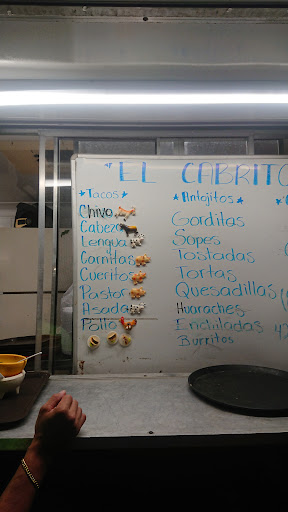 EL CABRITO
*Tacos*
Chivo
Cabeza
Lengua
Carnitas
Cueritos
Pastor
Asada
Pollo
*Antojitos*
Gorditas
Sopes
Tostadas
Tortas
Quesadillas
Huaraches
Enchiladas
Burritos